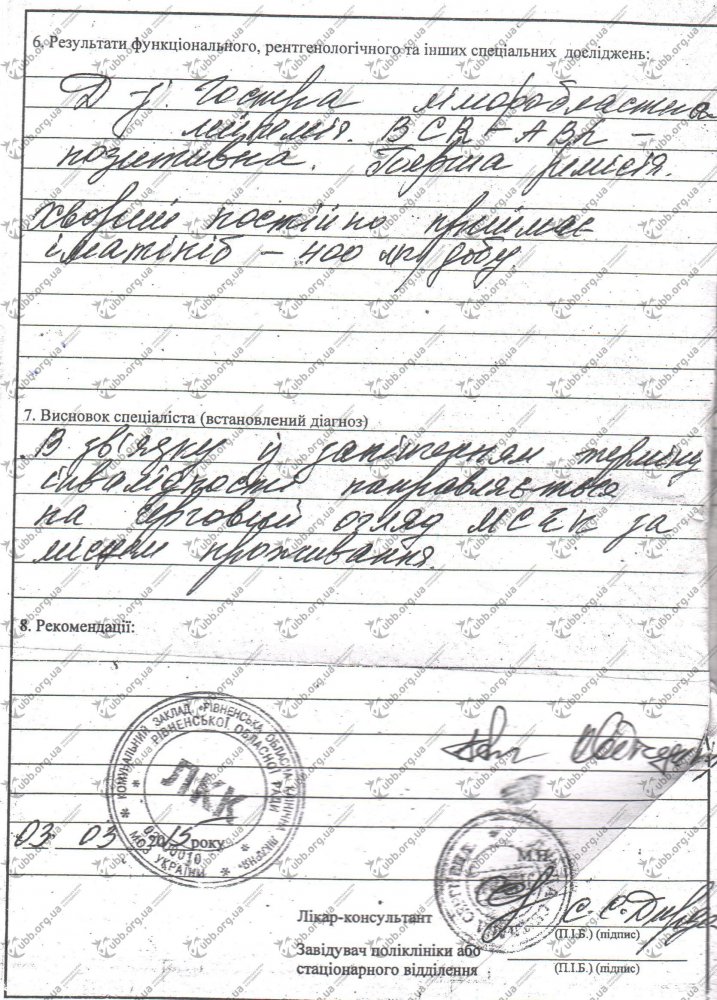 6. Результати функціонального, рентгенологічного та інших спеціальних досліджень:
Д-з: Гостра лімфобластна
лейкемія. BCR-ABL -
позитивна. Перша ремісія.
Хворий постійно приймає
іматініб – 400 мг/добу
7. Висновок спеціаліста (встановлений діагноз)
В зв'язку із закінченням терміну
інвалідності направляється
на черговий огляд МСЕК за
місцем проживання.
8. Рекомендації:
КОМУНАЛЬНИЙ ЗАКЛАД «РІВНЕНСЬКА ОБЛАСНА КЛІНІЧНА ЛІКАРНЯ»
РІВНЕНСЬКОЇ ОБЛАСНОЇ РАДИ
ЛКК
МОЗ УКРАЇНИ
03 03 2015 року
М.П.
Лікар-консультант
(П.І.Б.) (підпис)
Завідувач поліклініки або
стаціонарного відділення
(П.І.Б.) (підпис)
ubb.org.ua